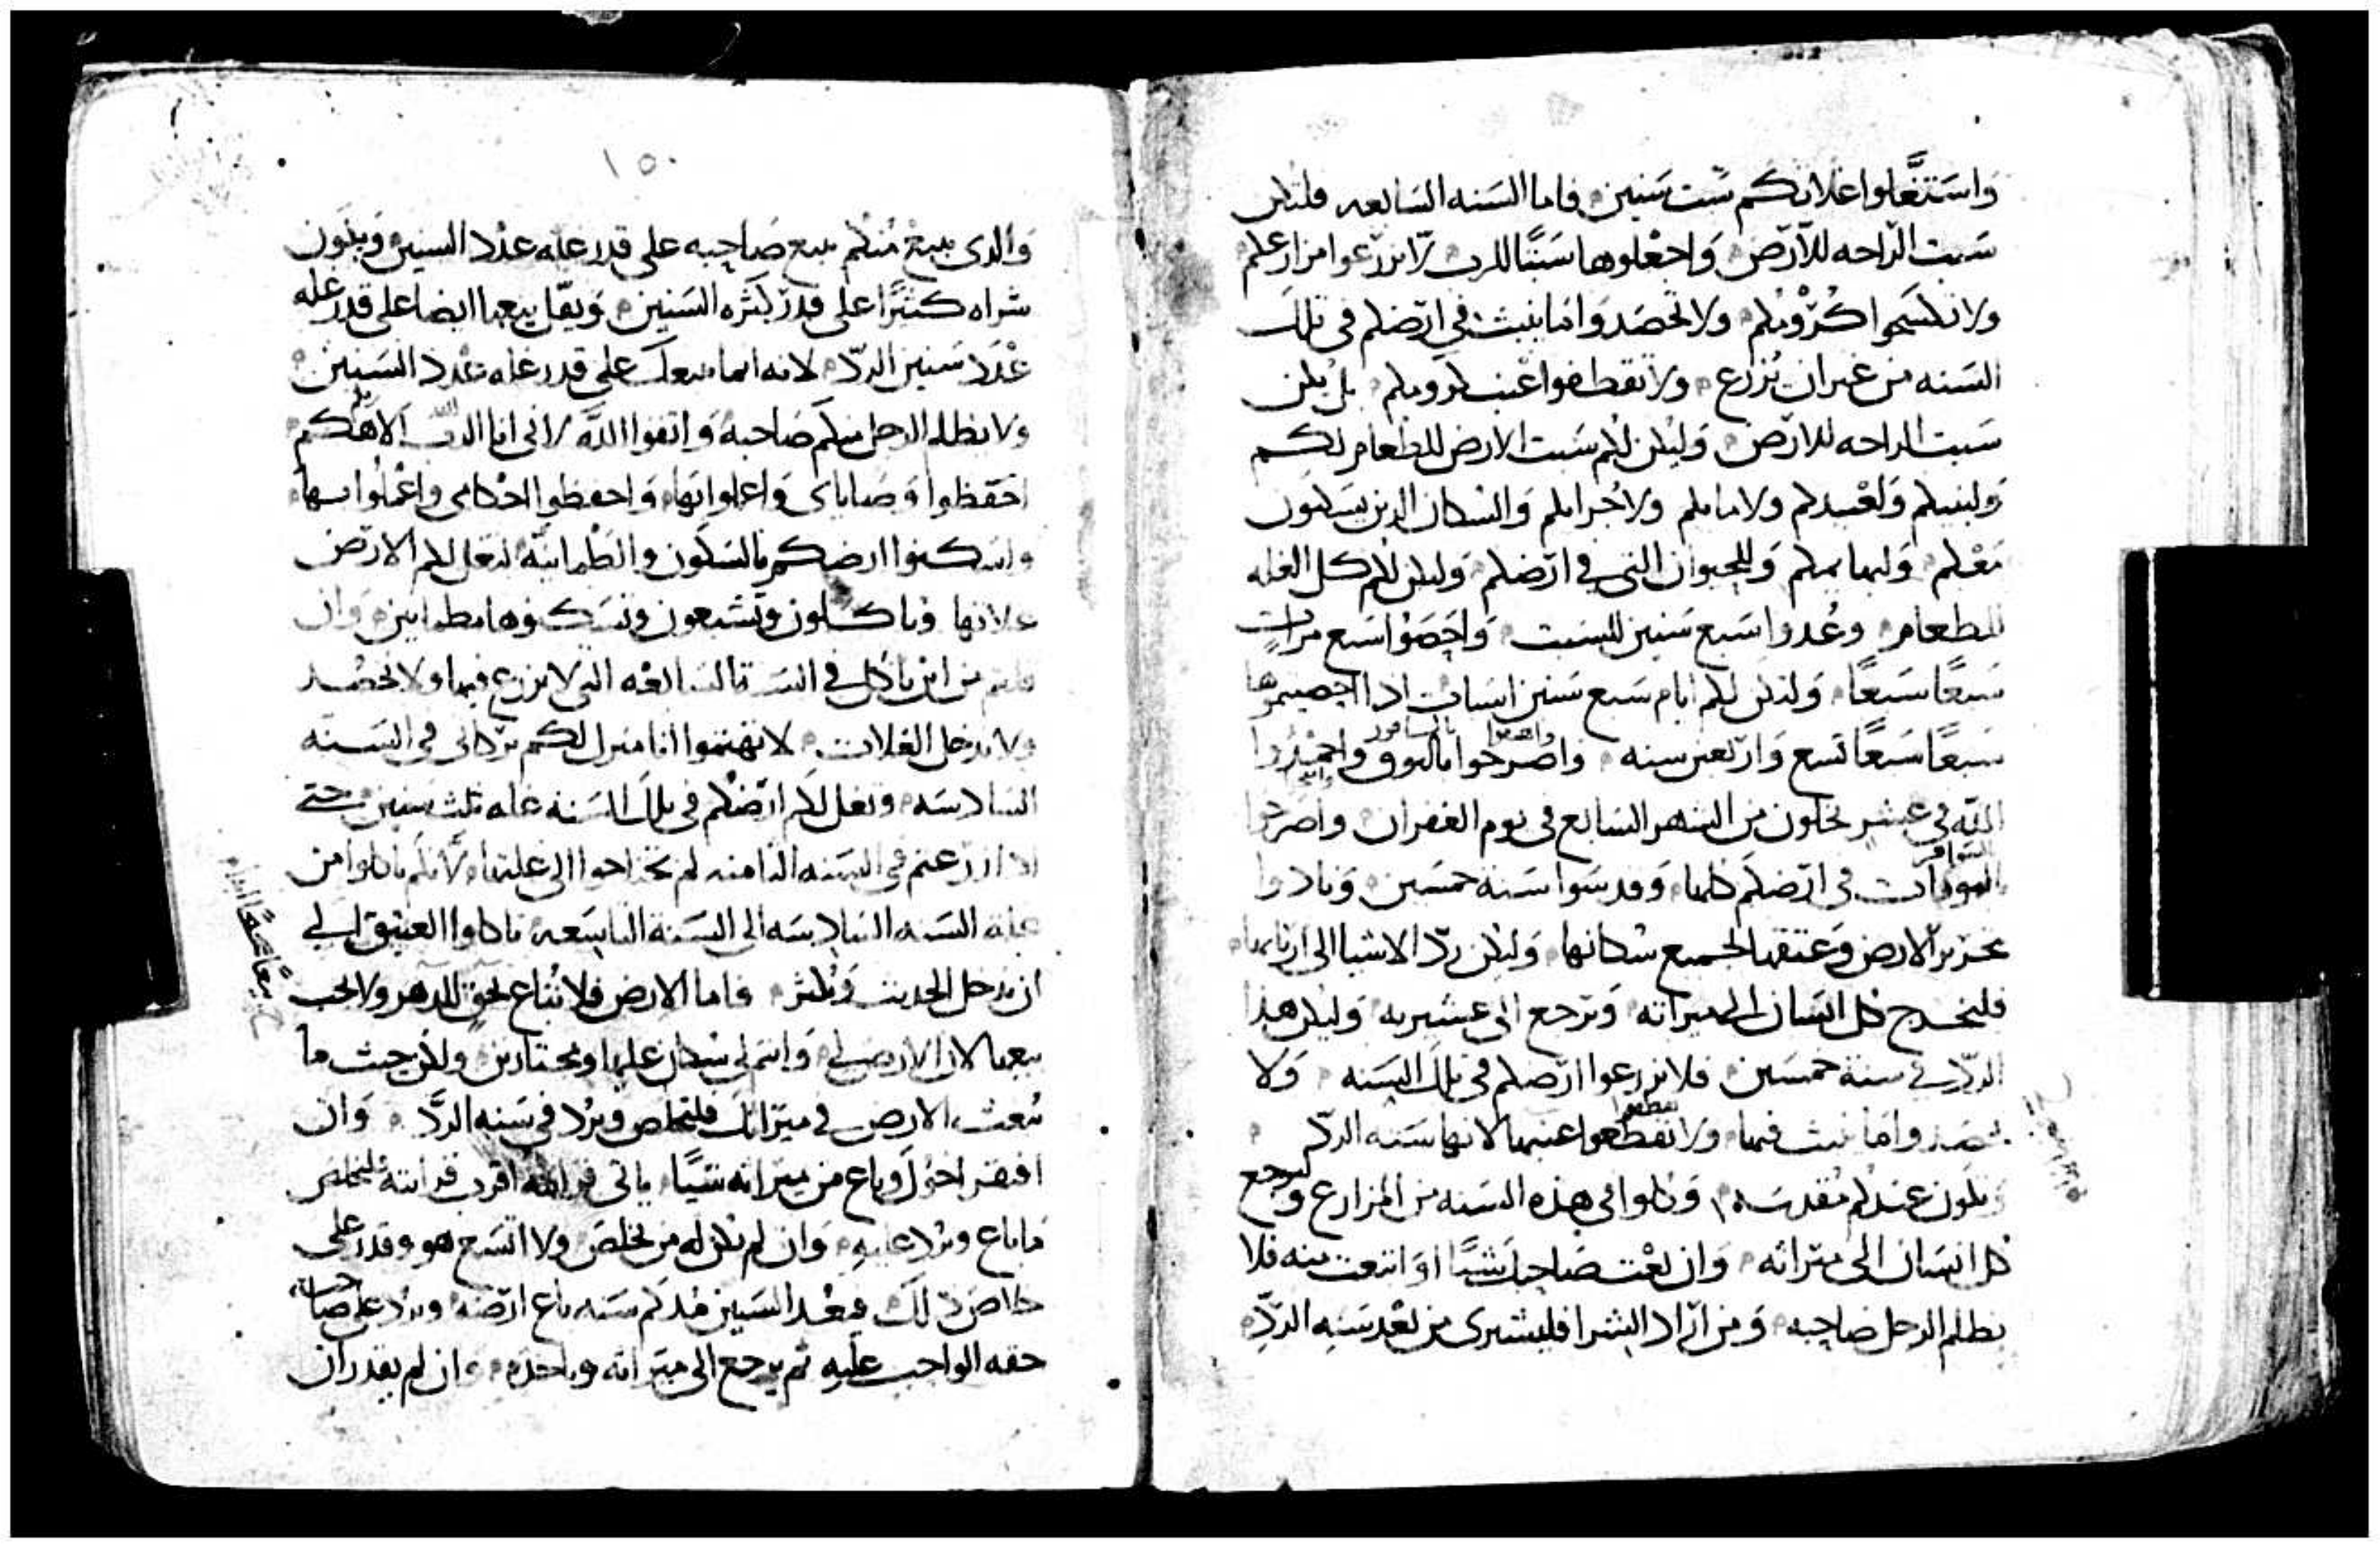 واستغلوا غلاتكم ست سنين فاما السنه السابعه فلتكن
سبت الراحه للارض واجعلوها سبتا للرب لا تزرعوا مزارعكم
ولا تكسحوا كرومكم ولا تحصدوا ما ينبت في ارضكم في تلك
السنه من غير ان يزرع ولا تقطفوا عنب كرومكم بل يكن
سبت الراحه للارض وليكن لكم سبت الارض للطعام لكم
ولبنيكم ولعبيدكم ولامايكم ولاجرايكم والسكان الدين يسكنون
معكم ولبهايمكم وللحيوان التي في ارضكم وليكن لكم كل الغله
للطعام وعدوا سبع سنين للسبت واحصوا سبع مرات
سبعًا سبعًا ولتكن لكم ايام سبع سنين اسبات ادا احصيتموها
سبعًا سبعًا تسع واربعين سنه واصرخوا بالبوق واحمدوا
الله في عشر تخلون من الشهر السابع في يوم الغفران واصرخوا
في ارضكم كلها وقدسوا سنة خمسين ونادوا
بتحرير الارض وعتقها لجميع سكانها وليكن ردّ الاشيا الى اربابها
فليخرج كل انسان الى ميراثه وترجع الى عشيرته وليكن هذا
الردّ في سنة خمسين فلا تزرعوا ارضكم في تلك السنه ولا
تحصدوا ما نبت فيها ولا تقطعوا عنبها لانها سنه الردّ
وتكون عندكم مقدسه وكلوا في هذه السنه من المزارع وليرجع
كل انسان الى ميراثه وان بعت صاحبك شيًا او ابتعت منه فلا
يظلم الرجل صاحبه ومن اراد الشرا فليشترى من بعد سنه الردّ
١٥٠
والدى يبيع منكم يبيع صاحبه على قدر غله عدد السنين ويكون
شراه كثيرًا على قدر كثره السنين ويقل بيعها ايضا على قدر غله
عدد سنين الردّ لانه انما يبيعك على قدر غله عدد السنين
ولا يظلم الرجل منكم صاحبه واتقوا الله لاني انا الرب الاهكم
احفظوا وصاياى واعملوا بها واحفظوا احكامى واعملوا بها
واسكنوا ارضكم بالسكون والطمانينه لتغل لكم الارض
غلاتها وتاكلون وتشبعون وتسكنوها مطمانين وان
قلتم من اين ناكل في السنة السابعه التي لا نزرع فيها ولا نحصد
ولا ندخل الغلات لا تهتموا انا منزل لكم بركاتى في السنه
السادسه وتغل لكم ارضكم في تلك السنه غله ثلث سنين حتى
ادا زرعتم في السنه الثامنه لم تحتاجوا الى غلتها لانكم تاكلوا من
غله السنه السادسه الى السنة التاسعه تاكلوا العتيق الى
ان يدخل الحديث ويكثر فاما الارض فلا تباع لحق الدهر ولا يجب
بيعها لان الارض لي وانتم لي سكان عليها ومجتازين ولكن حيث ما
بيعت الارض في ميراثك فلتخلص وترد في سنه الردّ وان
افتقر اخوك وباع من ميراثه شيًا ياتى قرابته اقرب قرابته فليخلص
ما باع ويرد عليه وان لم يكن له من يخلص ولا اتسع هو وقدر على
خلاص دلك فيعد السنين مند كم سنه باع ارضه ويرد على صاحبه
حقه الواجب عليه ثم يرجع الى ميراثه وياخذه وان لم يقدر ان